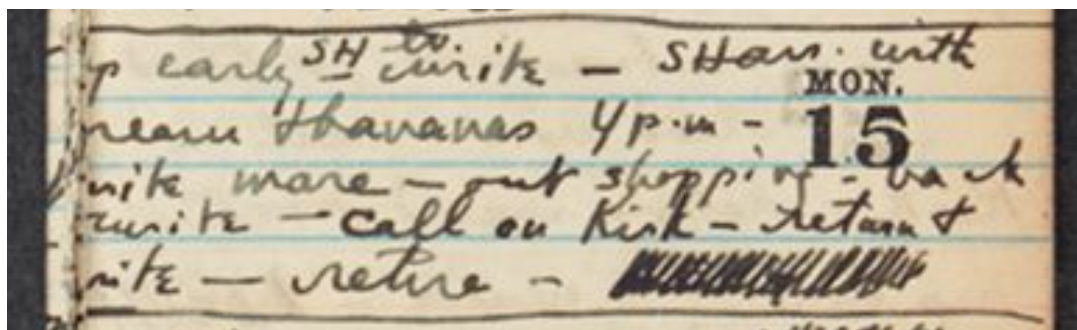 p early SH to write — SH arr. with
MON.
15
ream & bananas 4 p.m —
rite more — out shopping — back
write — call on Kirk — return &
rite — retire —